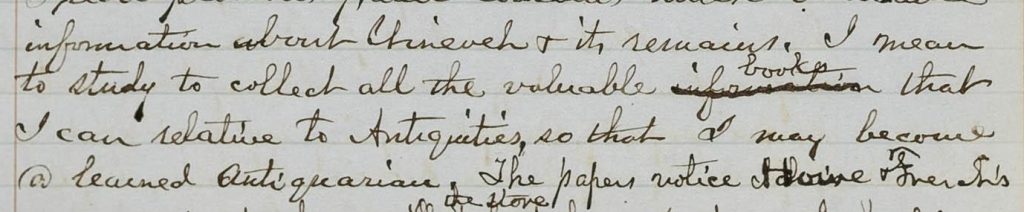 information about Chineveh & its remains. I mean
to study to collect all the valuable books information that
I can relative to Antiquities, so that I may become
a learned Antiquarian. The papers notice &
the store